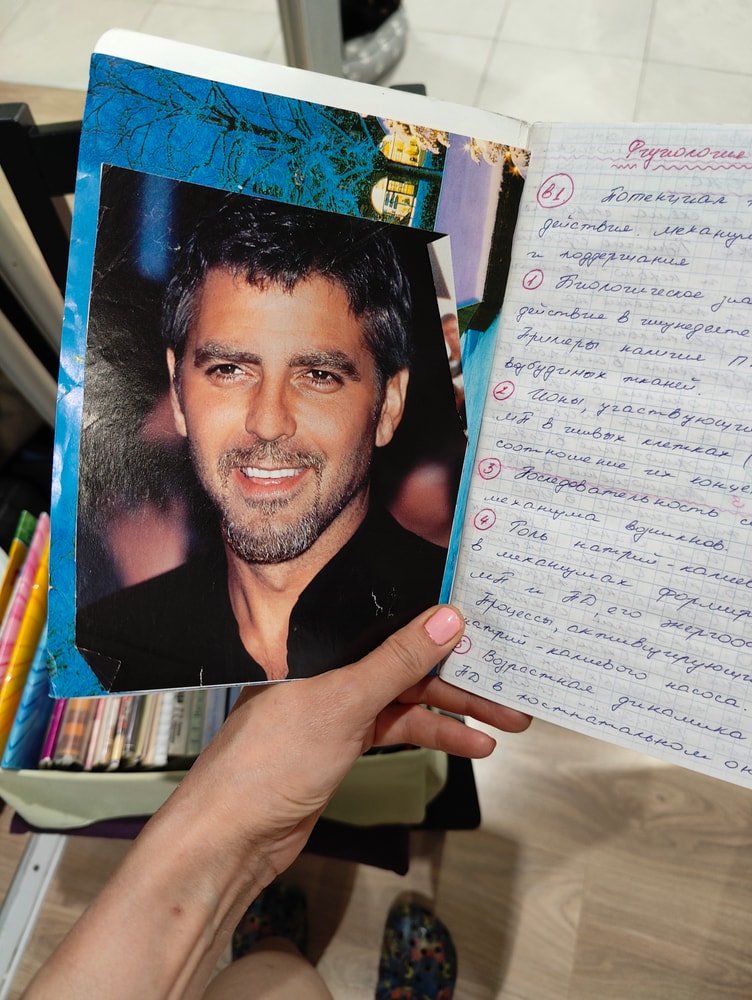 Физиология
В1 Потенциал
действия, механизм
и поддержания
1 Биологическое зна
действие в
Примеры наличия П
возбудимых тканей.
2 Ионы, участвующи
МП в живых клетках (
соотношение их конце
3 Последовательность с
механизма возникнов.
4 Роль натрий-калиев
в механизмах формир
МП и ПД, его энергооб
Процессы, активизирующи
натрий-калиевого насоса.
5 Возрастная динамика
ПД в постнатальном он